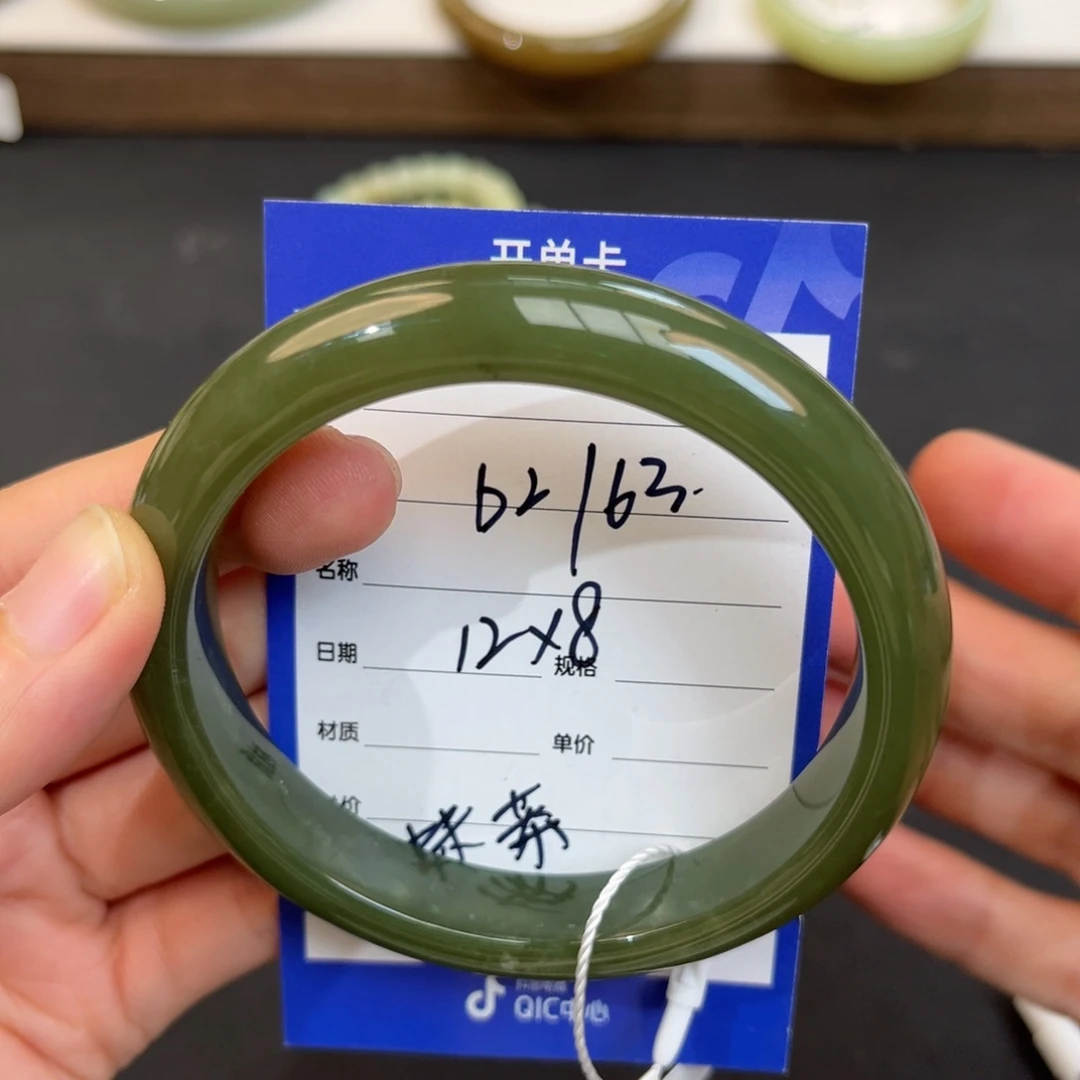 开单卡
62/63.
名称
12x8
日期 规格
材质 单价
价
QIC中心